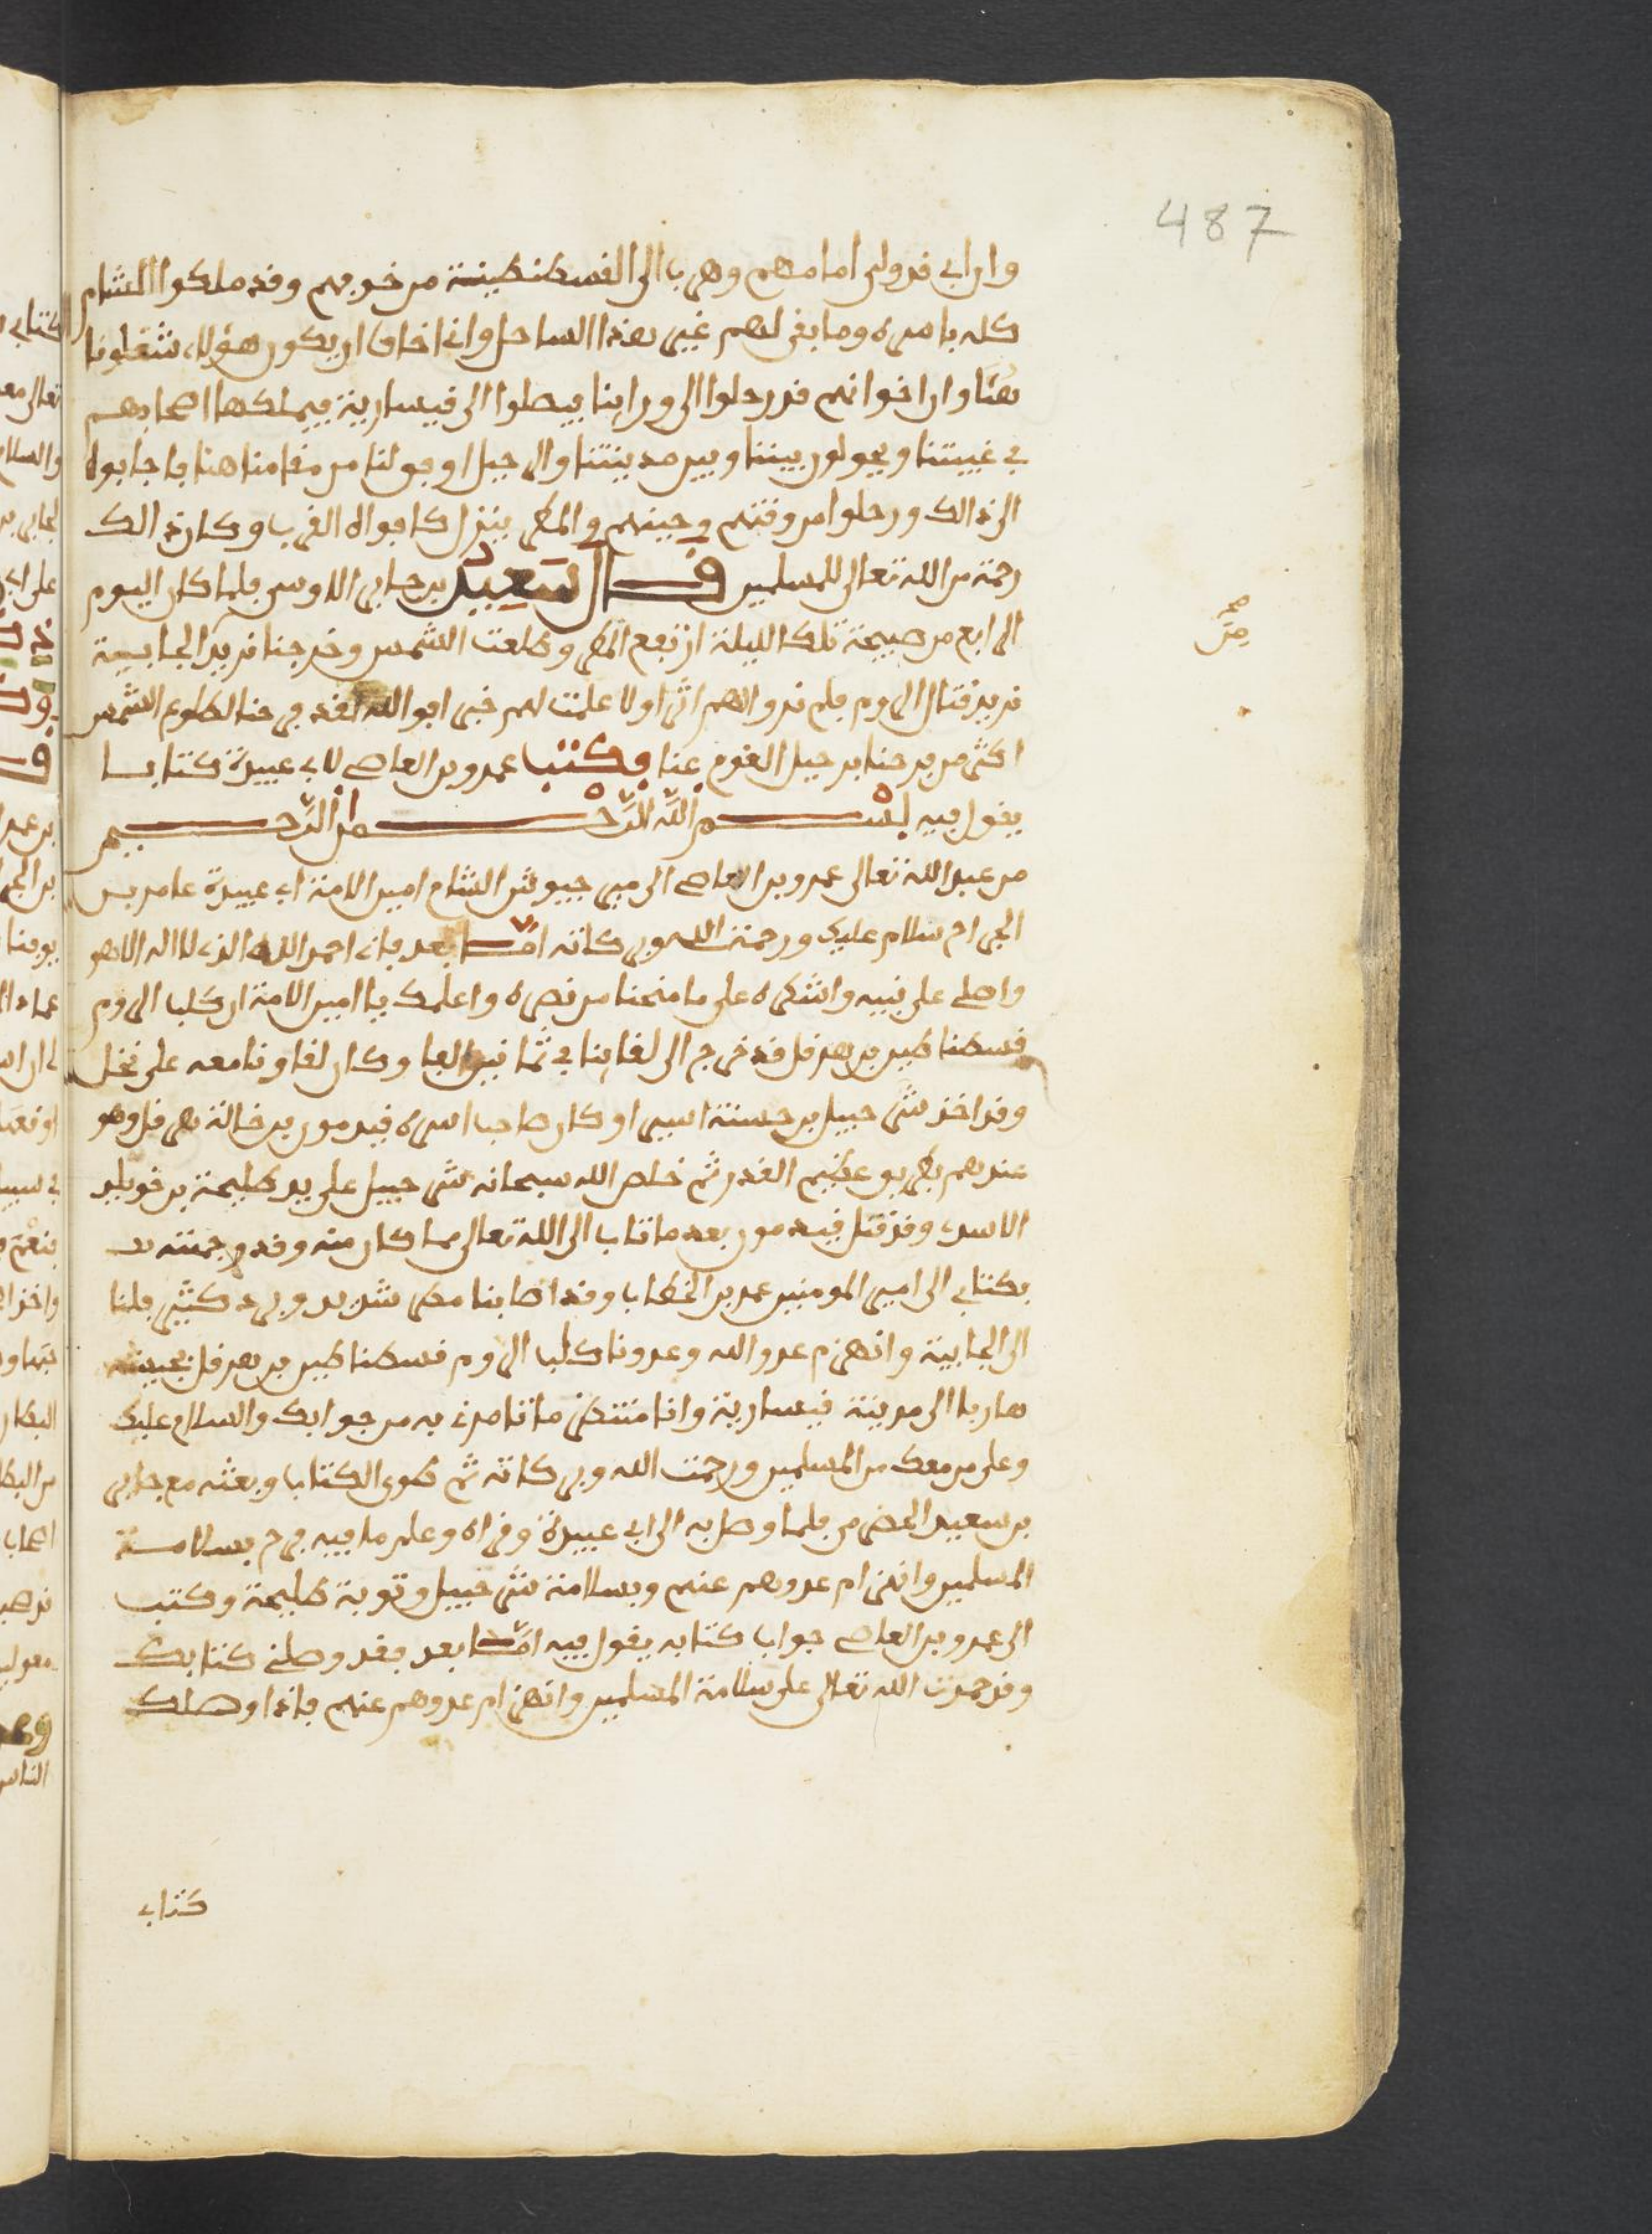 487
وان ابي قد ولى امامهم وهرب الى القسطنطينة من خوفهم وقد ملكوا الشام
كله باسره وما بقى لهم غير هذا الساحل وانا اخاف ان يكون هؤلاء شغلونا
هنا وان اخوانهم قد رحلوا الى وراينا فيصلوا الى قيسارية فيملكها اصحابهم
في غيبتنا ويحولون بيننا وبين مدينتنا والرحيل اوفق لنا من مقامنا هنا فاجابوه
الى ذالك ورحلوا من وقتهم وحينهم والمطر ينزل كافواه القرب وكان ذالك
رحمة من الله تعالى للمسلمين قال سعيد بن جابر الاوسي فلما كان اليوم
الرابع من صبيحة تلك الليلة ارتفع المطر وطلعت الشمس وخرجنا نريد الجابية
نريد قتال الروم فلم نر والهم اثرا ولا علمت لهم خبر افوالله لقد فرحنا لطلوع الشمس
اكثر من فرحنا برحيل القوم عنا وكتب عمرو بن العاصي لابي عبيدة كتابا
يقول فيه بسم الله الرحمن الرحيم
من عبد الله تعالى عمرو بن العاصي الى امير جيوش الشام امين الامة ابي عبيدة عامر بن
الجراح سلام عليك ورحمت الله وبركاته اما بعد فاني احمد الله الذي لا اله الا هو
واصلي على نبيه واشكره على ما منحنا من نصره واعلمك يا امين الامة ان كلب الروم
قسطناطين بن هرقل قد خرج الى لقاينا في ثمانين الفا وكان لقاونا معه على نخل
وقد اخذ شرحبيل بن حسنة اسيرا وكان صاحب اسره قيدمون بن خالة هرقل وهو
عندهم بطريق عظيم القدر ثم خلص الله سبحانه شرحبيل على يد طليحة بن خويلد
الاسدي وقد قتل قيدمون بعد ما تاب الى الله تعالى مما كان منه وقد وجهته
بكتابي الى امير المومنين عمر بن الخطاب وقد اصابنا مطر شديد وبرد كثير فملنا
الى الجابية وانهزم عدو الله وعدونا كلب الروم قسطناطين بن هرقل بجيشه
هاربا الى مدينة قيسارية وانا منتظر ما تامرني به من جوابك والسلام عليك
وعلى من معك من المسلمين ورحمت الله وبركاته ثم طوى الكتاب وبعثه مع جابر
بن سعيد الحضرمي فلما وصل به الى ابي عبيدة وقراه وعلم ما فيه فرح بسلامة
المسلمين وانهزام عدوهم عنهم وبسلامة شرحبيل وتوبة طليحة وكتب
الى عمرو بن العاصي جواب كتابه يقول فيه اما بعد فقد وصلني كتابك
وقد حمدت الله تعالى على سلامة المسلمين وانهزام عدوهم عنهم فاذا وصلك
كتابي